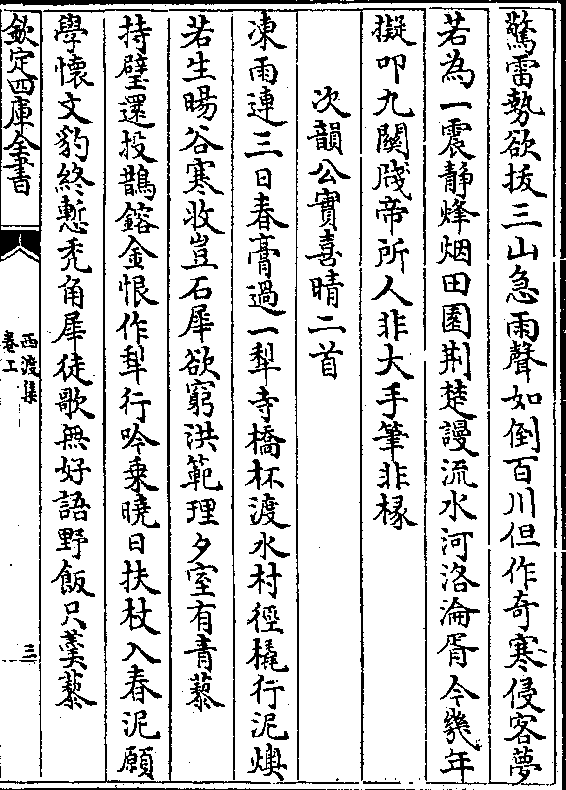 驚雷勢欲拔三山急雨聲如倒百川但作奇寒侵客夢
若為一震静烽烟田園荆楚謾流水河洛淪胥今幾年
擬叩九關牋帝所人非大手筆非椽
次韻公實喜晴二首
凍雨連三日春膏過一犁寺橋杯渡水村徑橇行泥燠
若生暘谷寒收豈石犀欲窮洪範理夕室有青藜
持璧還投鵲鎔金恨作犁行吟乗曉日扶杖入春泥願
學懷文豹終慙秃角犀徒歌無好語野飯只羮藜
欽定四庫全書
西渡集
卷上
三